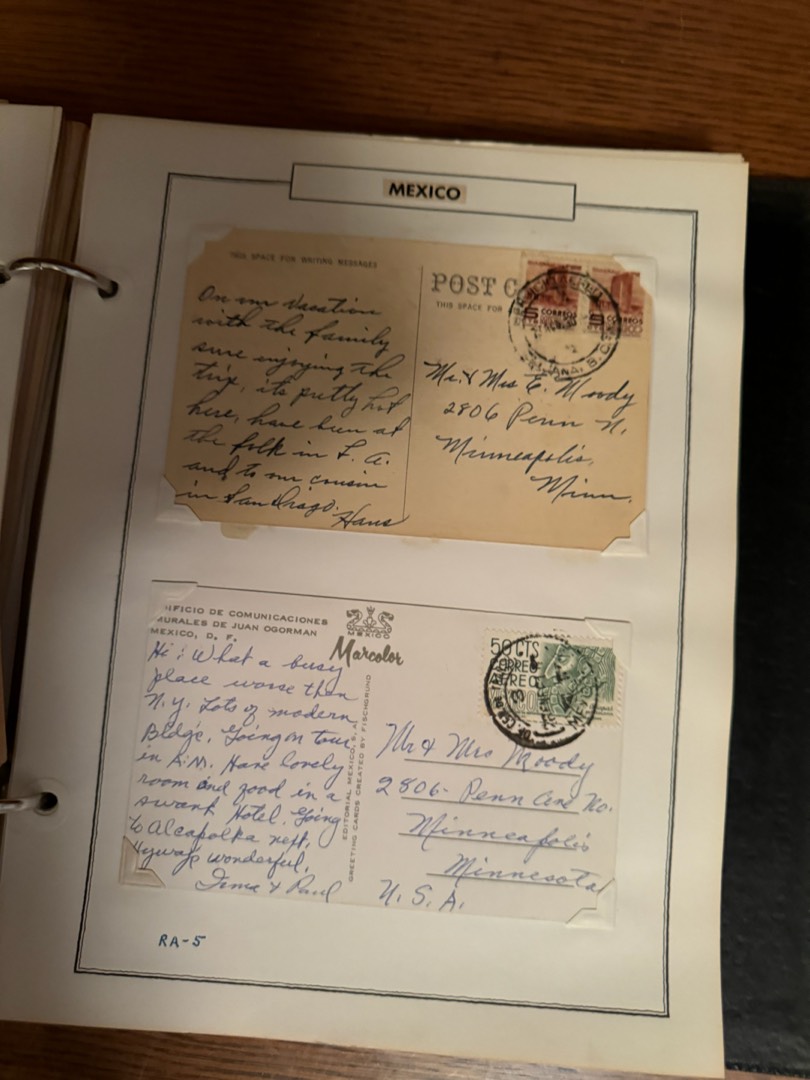 MEXICO
THIS SPACE FOR WRITING MESSAGES
POST C
THIS SPACE FOR
On our Vacation
with the family
sure enjoying the
trip, its pretty hot
here, have been at
the folk in L. A.
and to our cousin
in San Diago.
Hans
5 CORREOS
5 CORREOS
TIJUANA, B. C.
Mr. & Mrs E. Moody
2806 Penn N.
Minneapolis,
Minn.
EDIFICIO DE COMUNICACIONES
MURALES DE JUAN OGORMAN
MEXICO, D. F.
MEXICO
Marcolor
Hi! What a busy
place worse than
N.Y. Lots of modern
Bldg's. Going on tour
in A.M. Have lovely
room and food in a
swank Hotel. Going
to Alcapolka next.
wonderful.
& Paul
EDITORIAL MEXICO, S. A.
GREETING CARDS CREATED BY FISCHGRUND
50 CTS
CORREO
AEREO
Mr & Mrs Moody
2806- Penn Ave No.
Minneapolis
Minnesota
U. S. A.
RA-5